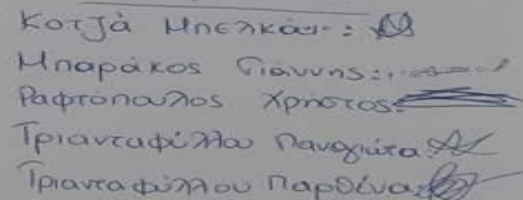 Κοτζά Μπελκάν:
Μπαράκος Γιάννης:
Ραφτόπουλος Χρήστος:
Τριανταφύλλου Παναγιώτα:
Τριανταφύλλου Παρθένα: